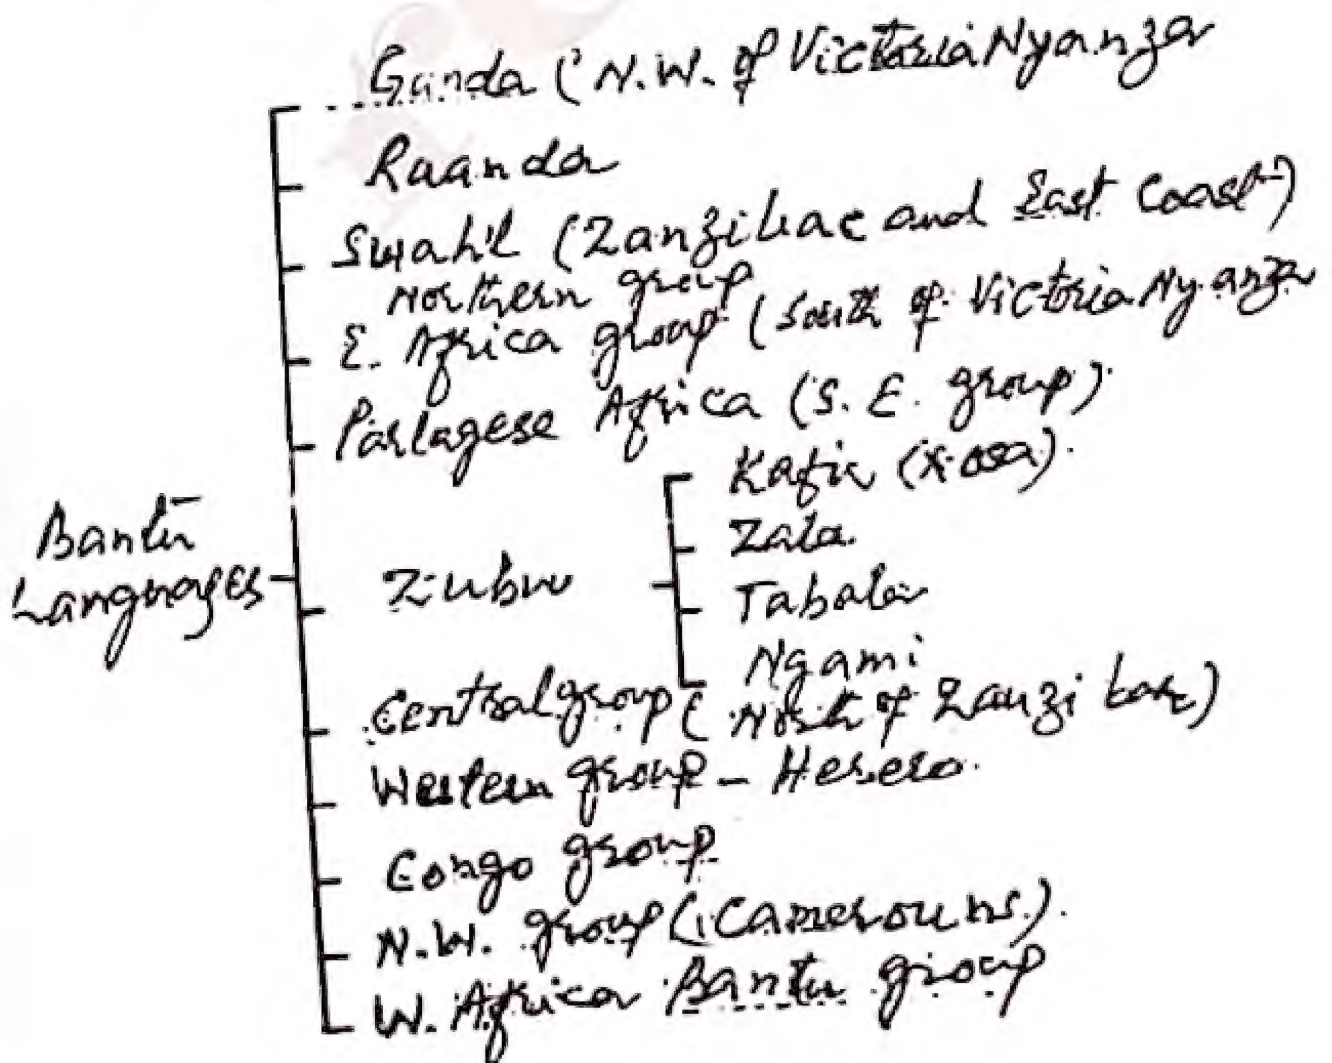 Ganda (N.W. of Victoria Nyanza
Ruanda
Swahil (Zanzibac and East Coast)
Northern group
E. Africa group (South of Victoria Nyanza
Parlagese Africa (S. E. group)
Kafir (Xosa).
Bantu
Languages
Zubuu
Zala.
Tabala
Ngami
Central group (North of Zanzi bar)
Western group - Herero.
Congo group
N.W. group (Camerouns.).
W. Africa Bantu group